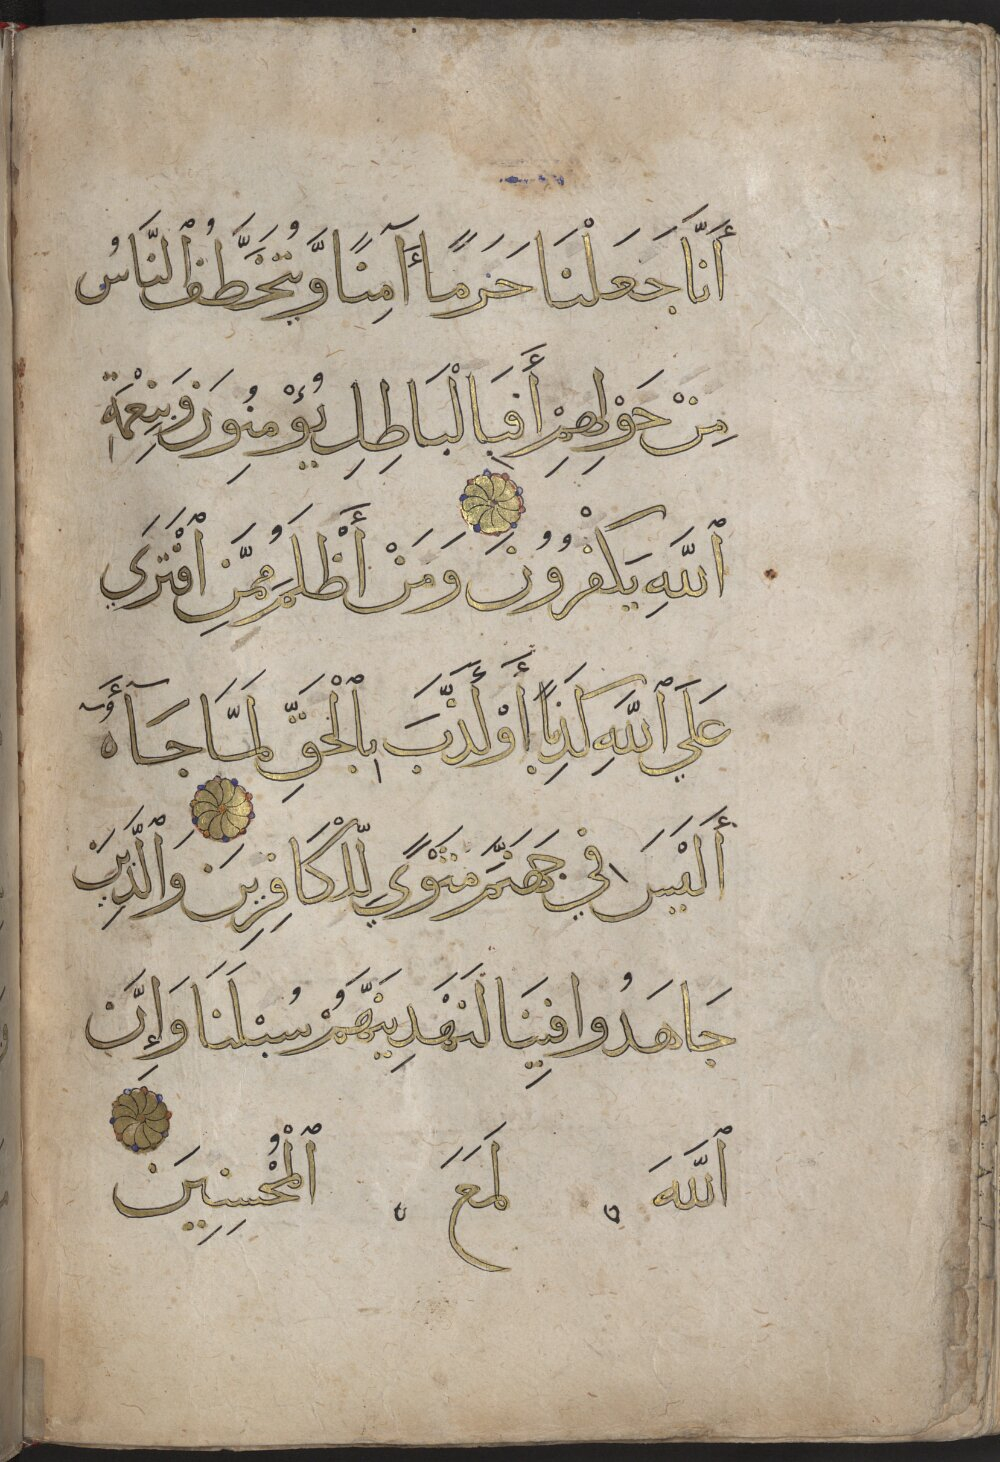 أَنَّا جَعَلْنَا حَرَمًا آمِنًا وَّيُتَخَطَّفُ ٱلنَّاسُ
مِنْ حَوْلِهِمْ أَفَبِالْبَاطِلِ يُؤْمِنُونَ وَبِنِعْمَةِ
ٱللَّهِ يَكْفُرُونَ وَمَنْ أَظْلَمُ مِمَّنِ ٱفْتَرَى
عَلَى ٱللَّهِ كَذِبًا أَوْ كَذَّبَ بِٱلْحَقِّ لَمَّا جَآءَهُ
أَلَيْسَ فِي جَهَنَّمَ مَثْوًى لِّلْكَافِرِينَ وَٱلَّذِينَ
جَاهَدُوا فِينَا لَنَهْدِيَنَّهُمْ سُبُلَنَا وَإِنَّ
ٱللَّهَ لَمَعَ ٱلْمُحْسِنِينَ